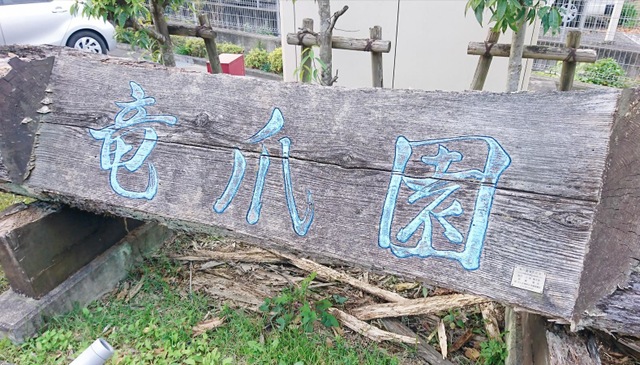 竜爪園